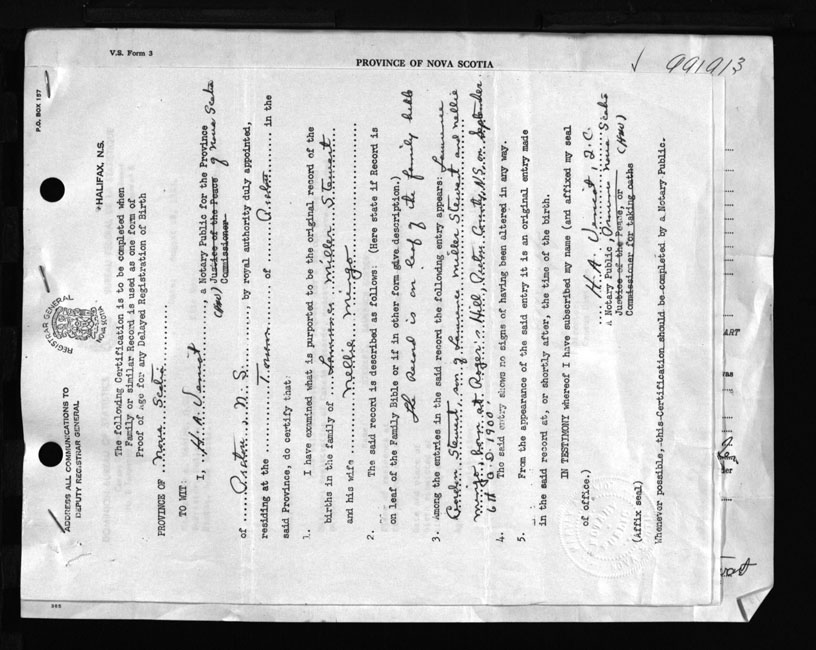 V.S. Form 3
PROVINCE OF NOVA SCOTIA
991913
P.O. BOX 157
HALIFAX, N.S.
REGISTRAR GENERAL
NOVA SCOTIA
ADDRESS ALL COMMUNICATIONS TO
DEPUTY REGISTRAR GENERAL
The following Certification is to be completed when
Family or similar Record is used as one form of
Proof of Age for any Delayed Registration of Birth
PROVINCE OF Nova Scotia
TO WIT:
I, H.A. , a Notary Public for the Province
(How) Justice of the Peace of Nova Scotia
Commissioner
of Pictou, N.S., by royal authority duly appointed,
residing at the Town of Pictou in the
said Province, do certify that:
1. I have examined what is purported to be the original record of the
births in the family of Lawrence Miller Stewart
and his wife Nellie Mingo
2. The said record is described as follows: (Here state if Record is
on leaf of the Family Bible or if in other form give description.)
The Record is on leaf of the family bible
3. Among the entries in the said record the following entry appears: Lawrence
Gordon Stewart, son of Lawrence Miller Stewart and Nellie
Mingo, born at Roger's Hill, Pictou County, N.S. on September
6th A.D. 1900
4. The said entry shows no signs of having been altered in any way.
5. From the appearance of the said entry it is an original entry made
in the said record at, or shortly after, the time of the birth.
IN TESTIMONY whereof I have subscribed my name (and affixed my seal
of office.)
H.A. , Q.C.
A Notary Public, Province Nova Scotia
Justice of the Peace, or (How)
Commissioner for taking oaths
(Affix seal)
Whenever possible, this Certification should be completed by a Notary Public.
ART
was
der
366